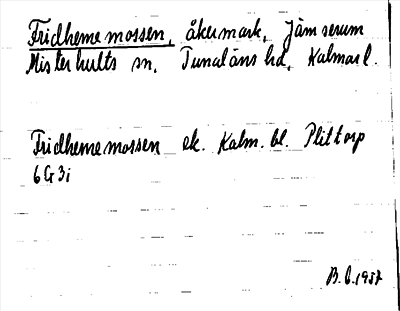 Fridhememossen, åkermark, Jämserum
Misterhults sn, Tunaläns hd, Kalmar l.
Fridhememossen ek. Kalm. bl. Plittorp
6G3i
B.G. 1957